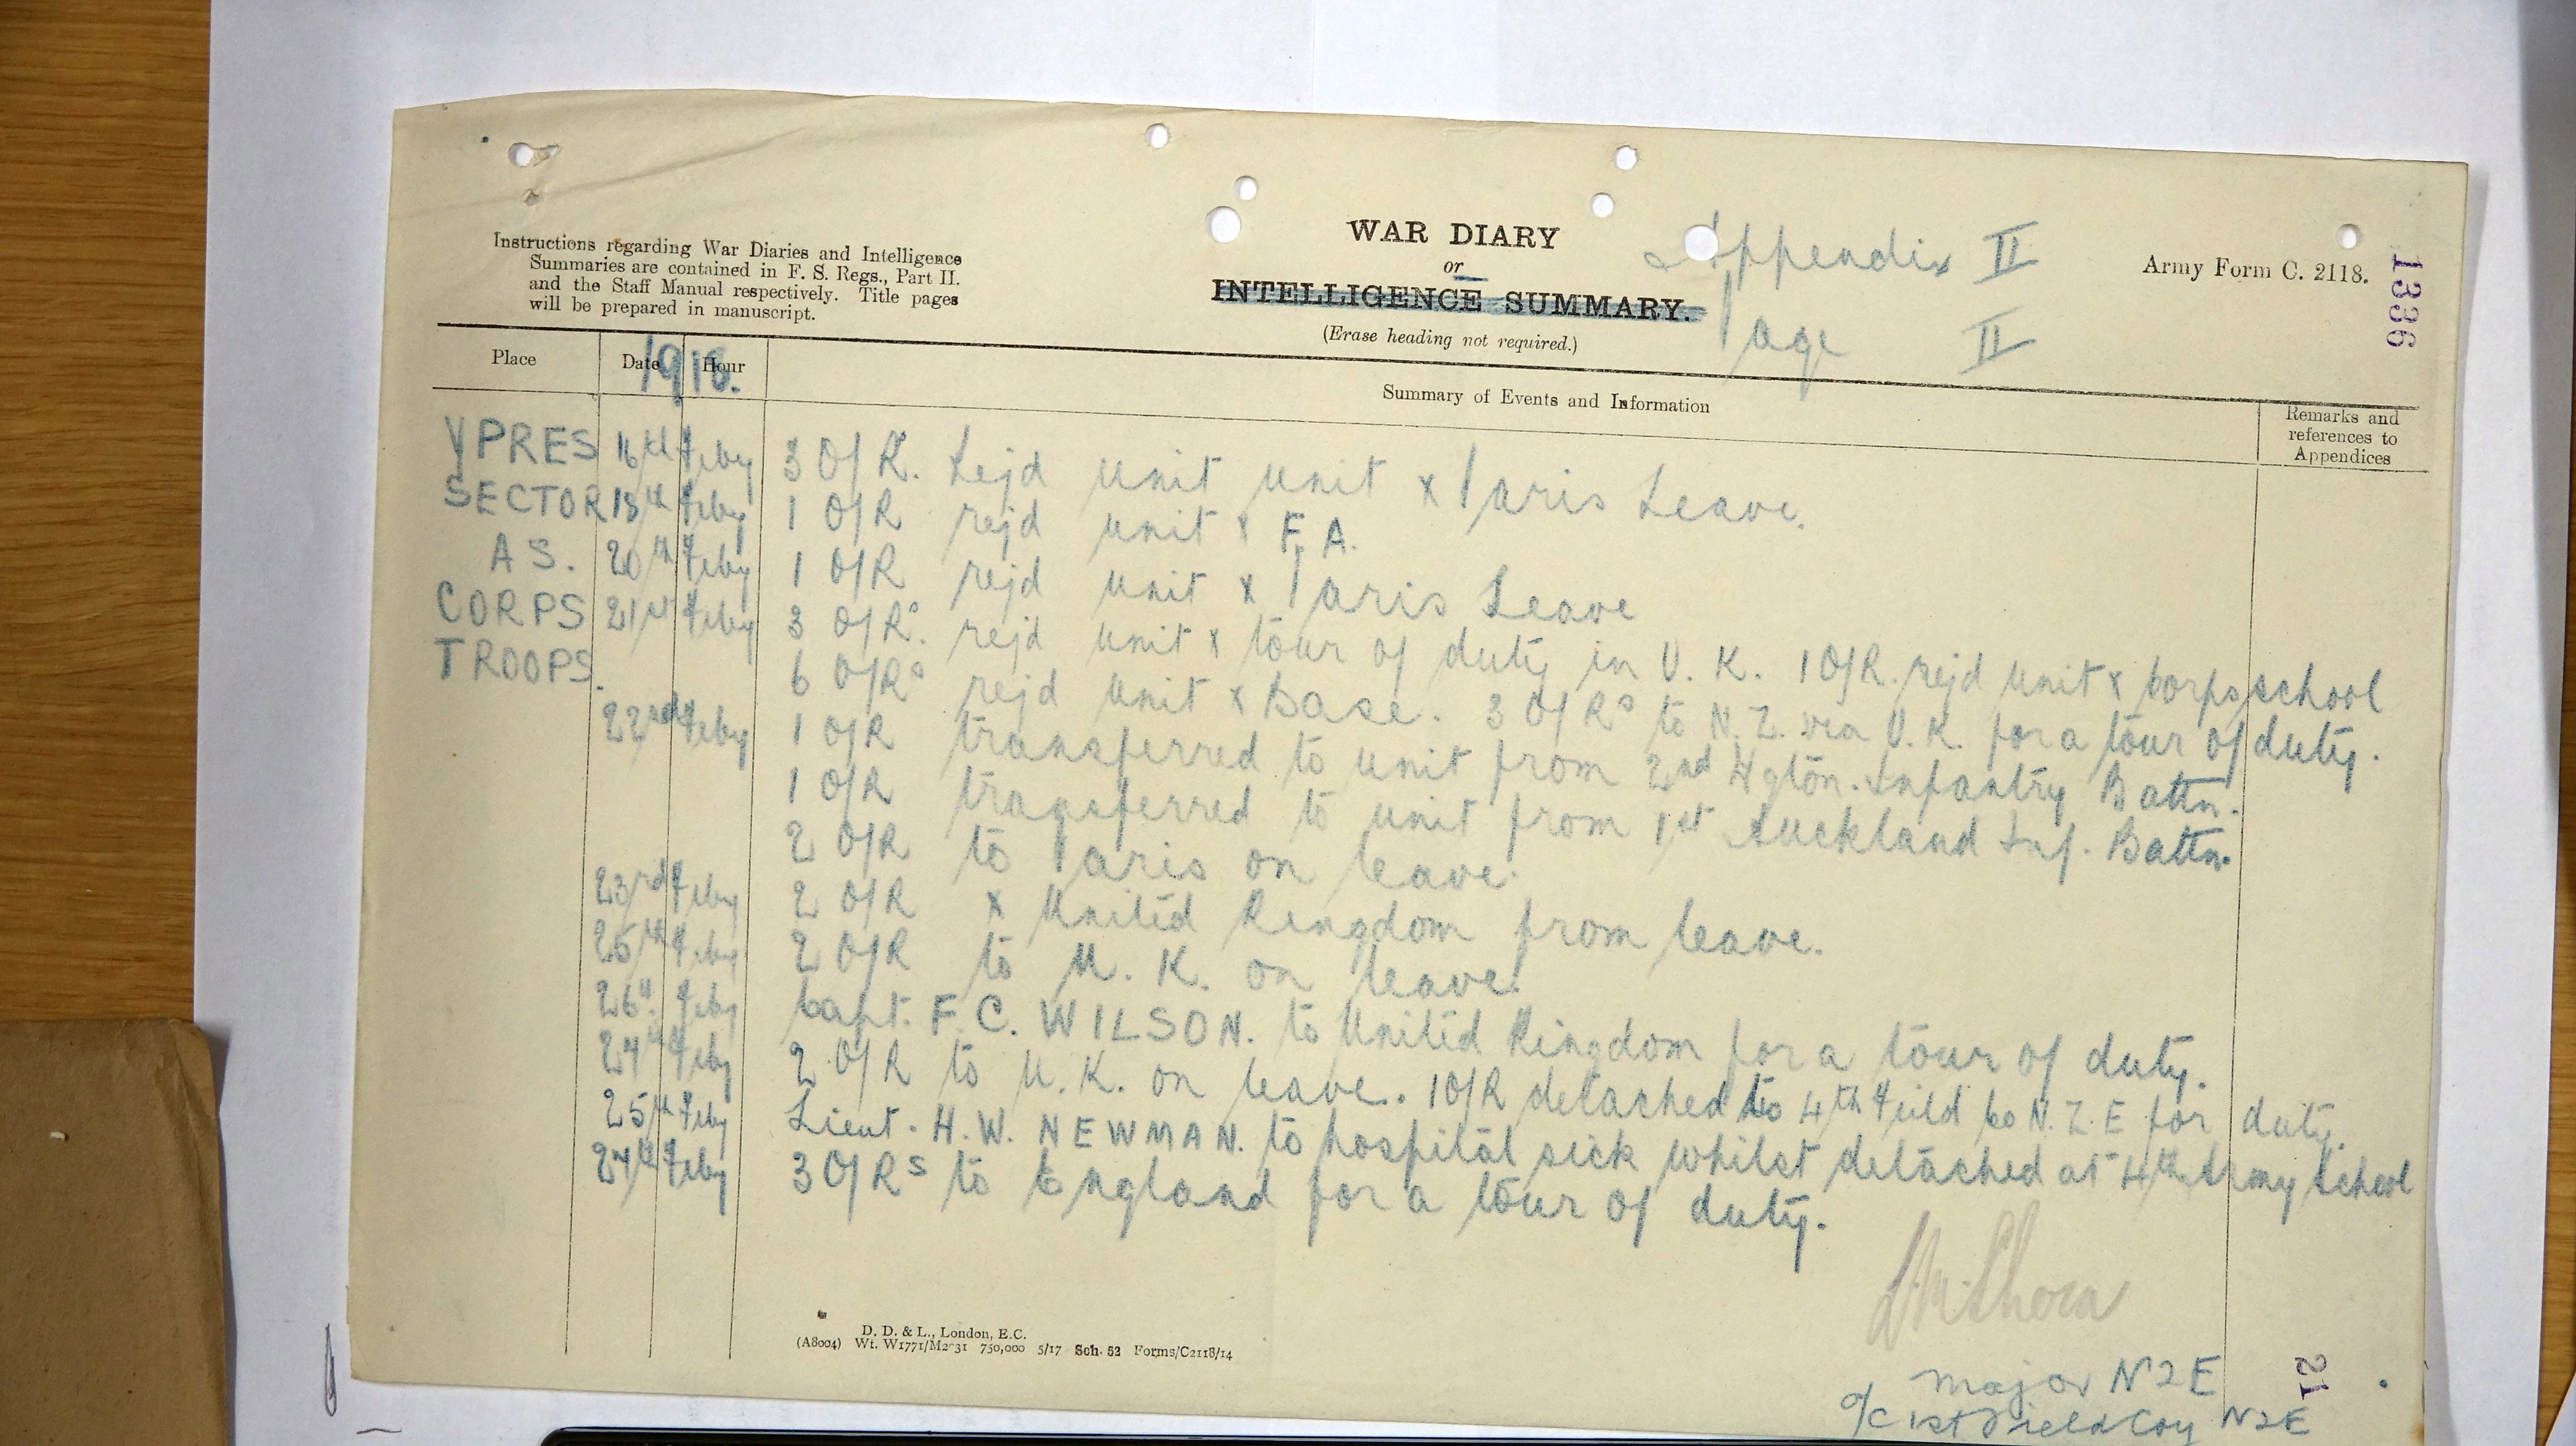 Instructions regarding War Diaries and Intelligence
Summaries are contained in F. S. Regs., Part II.
and the Staff Manual respectively. Title pages
will be prepared in manuscript.
WAR DIARY
or
INTELLIGENCE SUMMARY.
(Erase heading not required.)
Appendix II
Page II
Army Form C. 2118.
1336
Place Date Hour Summary of Events and Information Remarks and references to Appendices
1918.
YPRES 16th Feby 3 O/Rs. Rejd unit unit x Paris Leave.
SECTOR 18th Feby 1 O/R rejd unit x F.A.
A S. 20th Feby 1 O/R rejd unit x Paris Leave
CORPS 21st Feby 3 O/Rs. rejd unit x tour of duty in U. K. 1 O/R. rejd unit x Corps school
TROOPS. 6 O/Rs rejd unit x Base. 3 O/Rs to N. Z. via U. K. for a tour of duty.
22nd Feby 1 O/R transferred to unit from 2nd Wgton. Infantry Battn.
1 O/R transferred to unit from 1st Auckland Inf. Battn.
2 O/R to Paris on leave.
23rd Feby 2 O/R x United Kingdom from leave.
25th Feby 2 O/R to U. K. on leave.
26th Feby Capt. F. C. WILSON. to United Kingdom for a tour of duty.
27th Feby 2 O/R to U. K. on leave. 1 O/R detached to 4th Field Co N. Z. E for duty.
25th Feby Lieut. H. W. NEWMAN. to hospital sick whilst detached at 4th Army School
27th Feby 3 O/Rs to England for a tour of duty.
Major NZE
O/C 1st Field Coy NZE
21
D. D. & L., London, E.C.
(A8004) Wt. W1771/M2031 750,000 5/17 Sch. 52 Forms/C2118/14